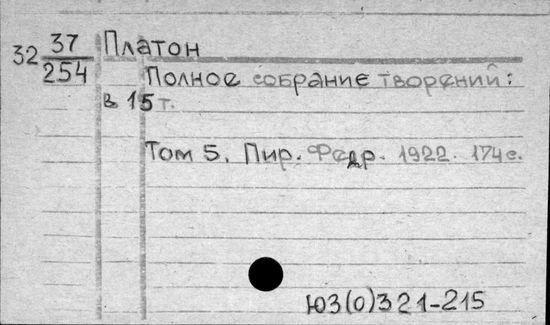 32 37/254 Платон
Полное собрание творений:
в 15 т.
Том 5. Пир. Федр. 1922. 174 с.
Ю3(0)321-215